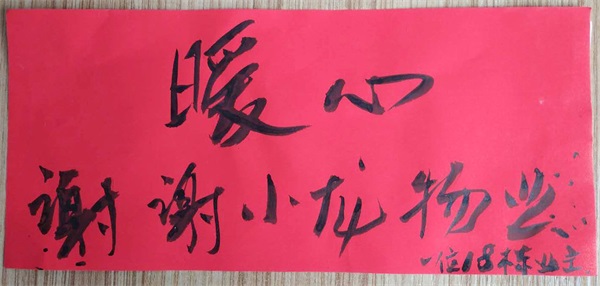 暖心
谢谢小龙物业
一位18栋业主